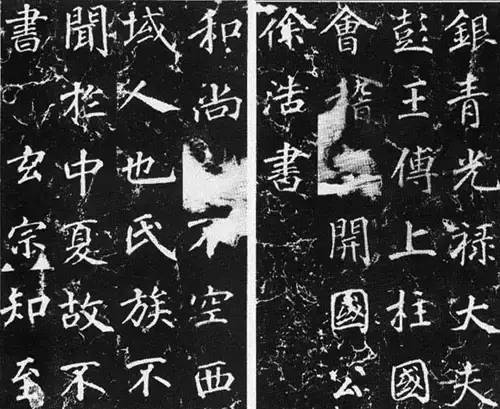 銀青光禄大夫
彭王傅上柱國
會稽開國公
徐浩書
和尚不空西
域人也氏族不
聞於中夏故不
書玄宗知至